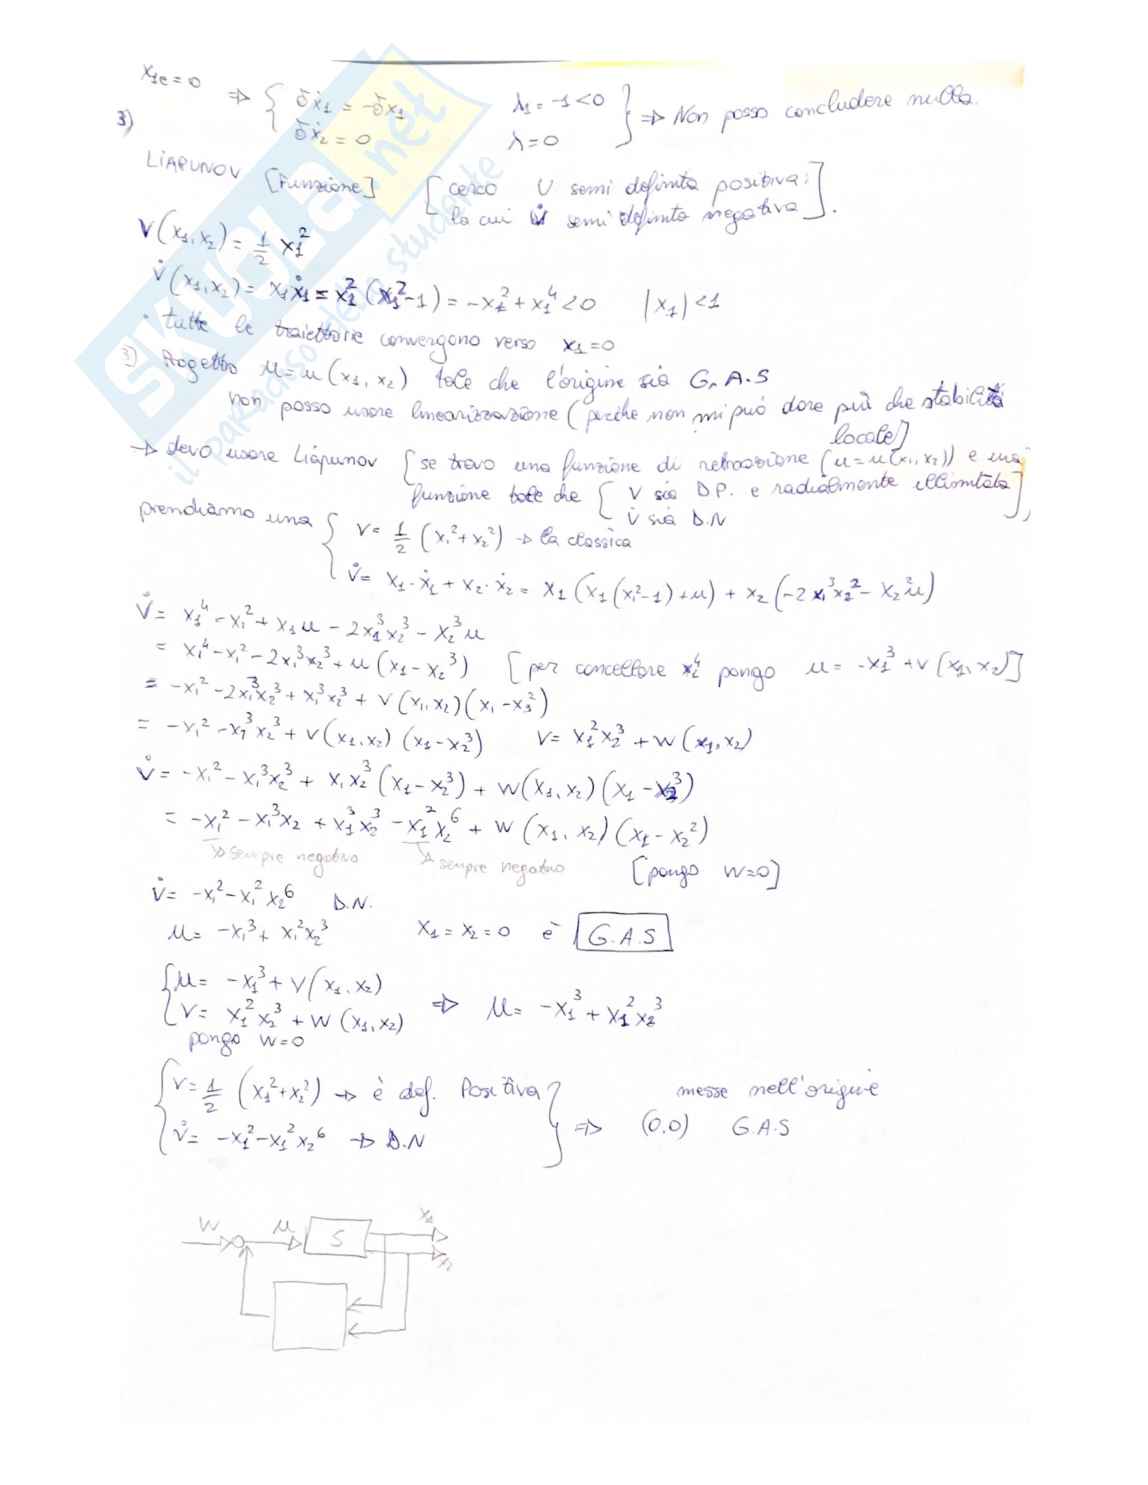 x1e = 0 ⇒ { δẋ1 = -δx1 λ1 = -1 < 0 } ⇒ Non posso concludere nulla.
3) δẋ2 = 0 λ = 0
LIAPUNOV [Funzione] [cerco V semi definita positiva:
la cui V̇ semi definita negativa].
V(x1, x2) = 1/2 x1²
V̇(x1, x2) = x1ẋ1 = x1²(x1² - 1) = -x1² + x1⁴ < 0 |x1| < 1
• tutte le traiettorie convergono verso x1 = 0
3) Progetto u = u(x1, x2) tale che l'origine sia G.A.S
non posso usare linearizzazione (perche non mi può dare più che stabilità
locale)
→ devo usare Liapunov [se trovo una funzione di retroazione (u = u(x1, x2)) e una
funzione tale che { V sia DP. e radialmente illimitata],
V̇ sia D.N
prendiamo una { V = 1/2 (x1² + x2²) → la classica
V̇ = x1·ẋ1 + x2·ẋ2 = x1(x1(x1² - 1) + u) + x2(-2x1³x2² - x2²u)
V̇ = x1⁴ - x1² + x1u - 2x1³x2³ - x2³u
= x1⁴ - x1² - 2x1³x2³ + u(x1 - x2³) [per cancellare x1⁴ pongo u = -x1³ + v(x1, x2)]
= -x1² - 2x1³x2³ + x1³x2³ + v(x1, x2)(x1 - x2³)
= -x1² - x1³x2³ + v(x1, x2)(x1 - x2³) v = x1²x2³ + w(x1, x2)
V̇ = -x1² - x1³x2³ + x1x2³(x1 - x2³) + w(x1, x2)(x1 - x2³)
= -x1² - x1³x2 + x1³x2³ - x1²x2⁶ + w(x1, x2)(x1 - x2²)
→ sempre negativo → sempre negativo [pongo w=0]
V̇ = -x1² - x1²x2⁶ D.N.
u = -x1³ + x1²x2³ x1 = x2 = 0 è G.A.S
{ u = -x1³ + v(x1, x2)
v = x1²x2³ + w(x1, x2) ⇒ u = -x1³ + x1²x2³
pongo w=0
{ V = 1/2 (x1² + x2²) → è def. Positiva } messe nell'origine
V̇ = -x1² - x1²x2⁶ → D.N ⇒ (0,0) G.A.S
w u S x1
x2
SKUOLA.net
il paradiso dello studente